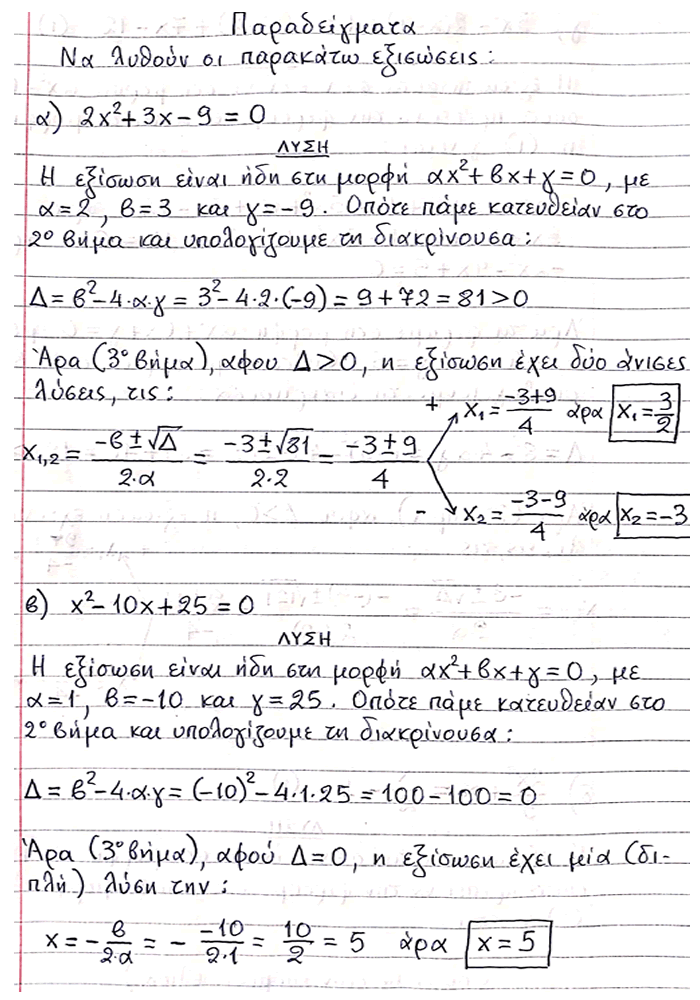 Παραδείγματα
Να λυθούν οι παρακάτω εξισώσεις:
α) 2x²+3x-9=0
ΛΥΣΗ
Η εξίσωση είναι ήδη στη μορφή αx²+βx+γ=0, με
α=2, β=3 και γ=-9. Οπότε πάμε κατευθείαν στο
2ο βήμα και υπολογίζουμε τη διακρίνουσα:
Δ=β²-4·α·γ=3²-4·2·(-9)=9+72=81>0
Άρα (3ο βήμα), αφού Δ>0, η εξίσωση έχει δύο άνισες
λύσεις, τις:
+ x₁=(-3+9)/4 άρα x₁=3/2
x₁,₂=(-β±√Δ)/(2·α)=(-3±√81)/(2·2)=(-3±9)/4
- x₂=(-3-9)/4 άρα x₂=-3
β) x²-10x+25=0
ΛΥΣΗ
Η εξίσωση είναι ήδη στη μορφή αx²+βx+γ=0, με
α=1, β=-10 και γ=25. Οπότε πάμε κατευθείαν στο
2ο βήμα και υπολογίζουμε τη διακρίνουσα:
Δ=β²-4·α·γ=(-10)²-4·1·25=100-100=0
Άρα (3ο βήμα), αφού Δ=0, η εξίσωση έχει μία (δι-
πλή) λύση την:
x=-β/(2·α)=-(-10)/(2·1)=10/2=5 άρα x=5